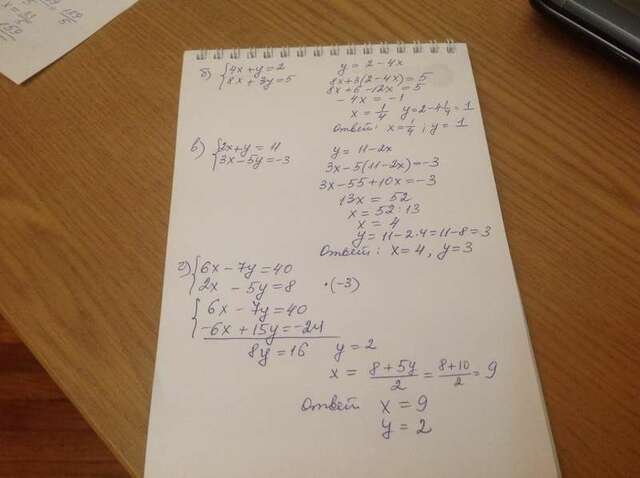 б) {4x+y=2
{8x+3y=5
y=2-4x
8x+3(2-4x)=5
8x+6-12x=5
-4x=-1
x=1/4 y=2-4·1/4=1
Ответ: x=1/4; y=1
в) {2x+y=11
{3x-5y=-3
y=11-2x
3x-5(11-2x)=-3
3x-55+10x=-3
13x=52
x=52:13
x=4
y=11-2·4=11-8=3
Ответ: x=4, y=3
г) {6x-7y=40
{2x-5y=8 ·(-3)
{6x-7y=40
{-6x+15y=-24
8y=16 y=2
x=(8+5y)/2=(8+10)/2=9
Ответ x=9
y=2